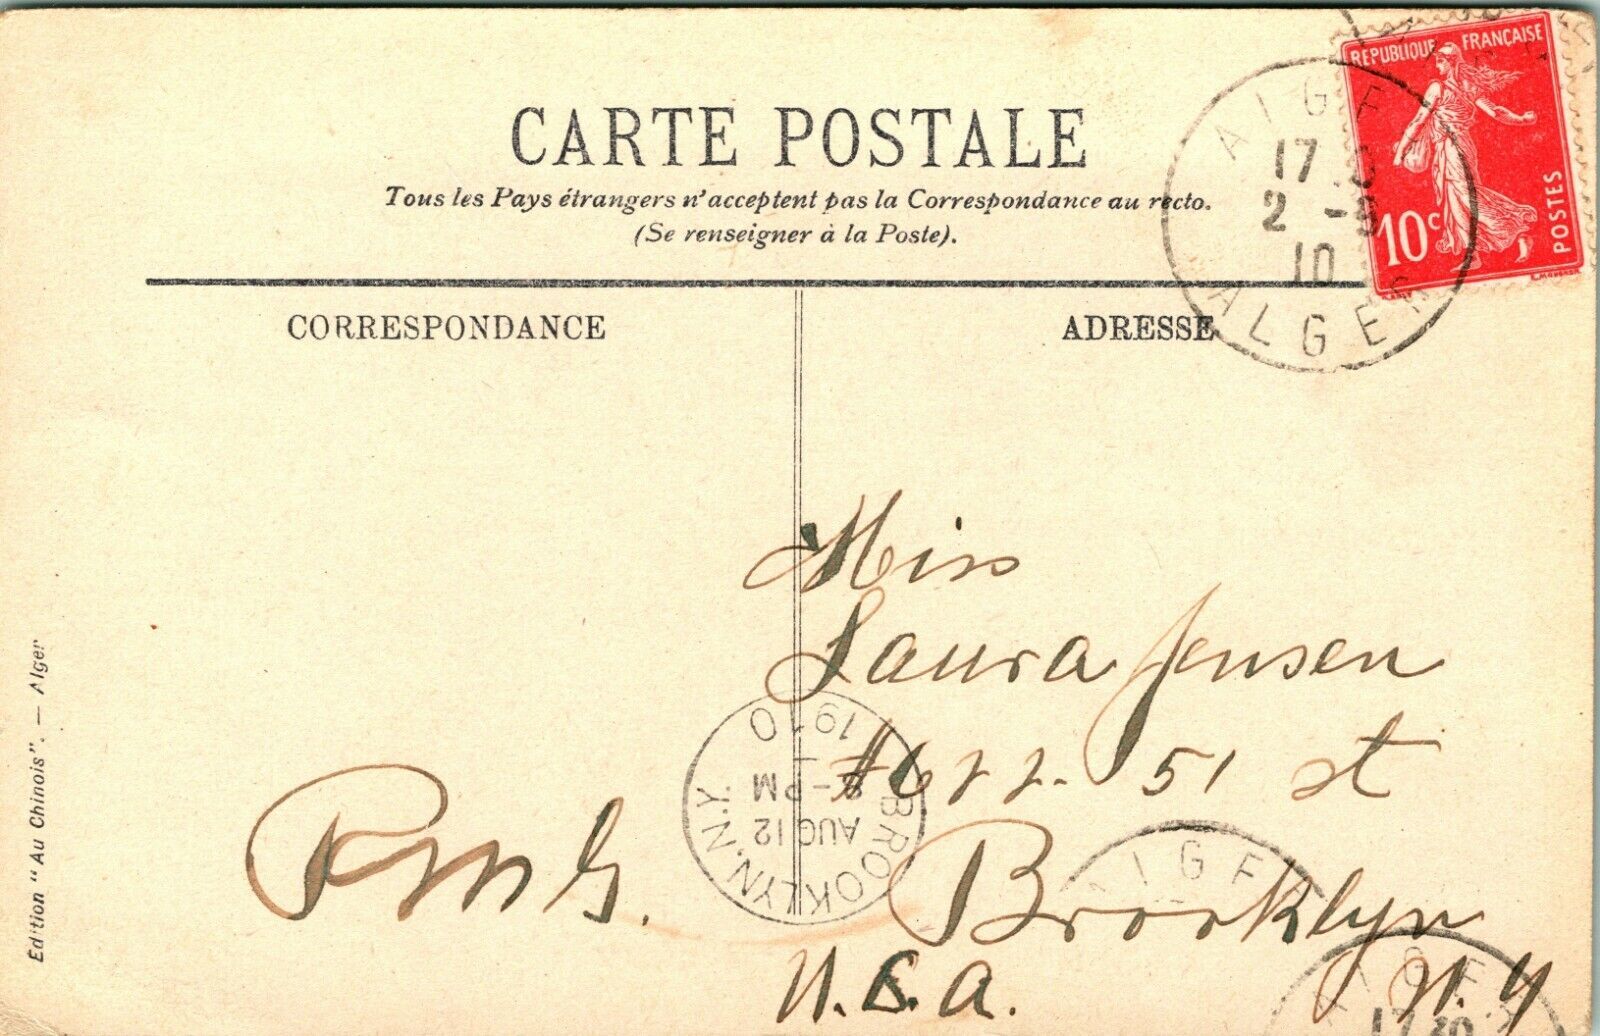 RÉPUBLIQUE FRANÇAISE
10c POSTES
ALGER
17
2 -8
10
ALGER
CARTE POSTALE
Tous les Pays étrangers n'acceptent pas la Correspondance au recto.
(Se renseigner à la Poste).
CORRESPONDANCE
ADRESSE
Miss
Laura Jensen
51 st
Brooklyn
N.Y
U.S.A.
R M G.
BROOKLYN, N.Y.
AUG 12
PM
1910
ALGER
ALGER
Edition "Au Chinois". — Alger